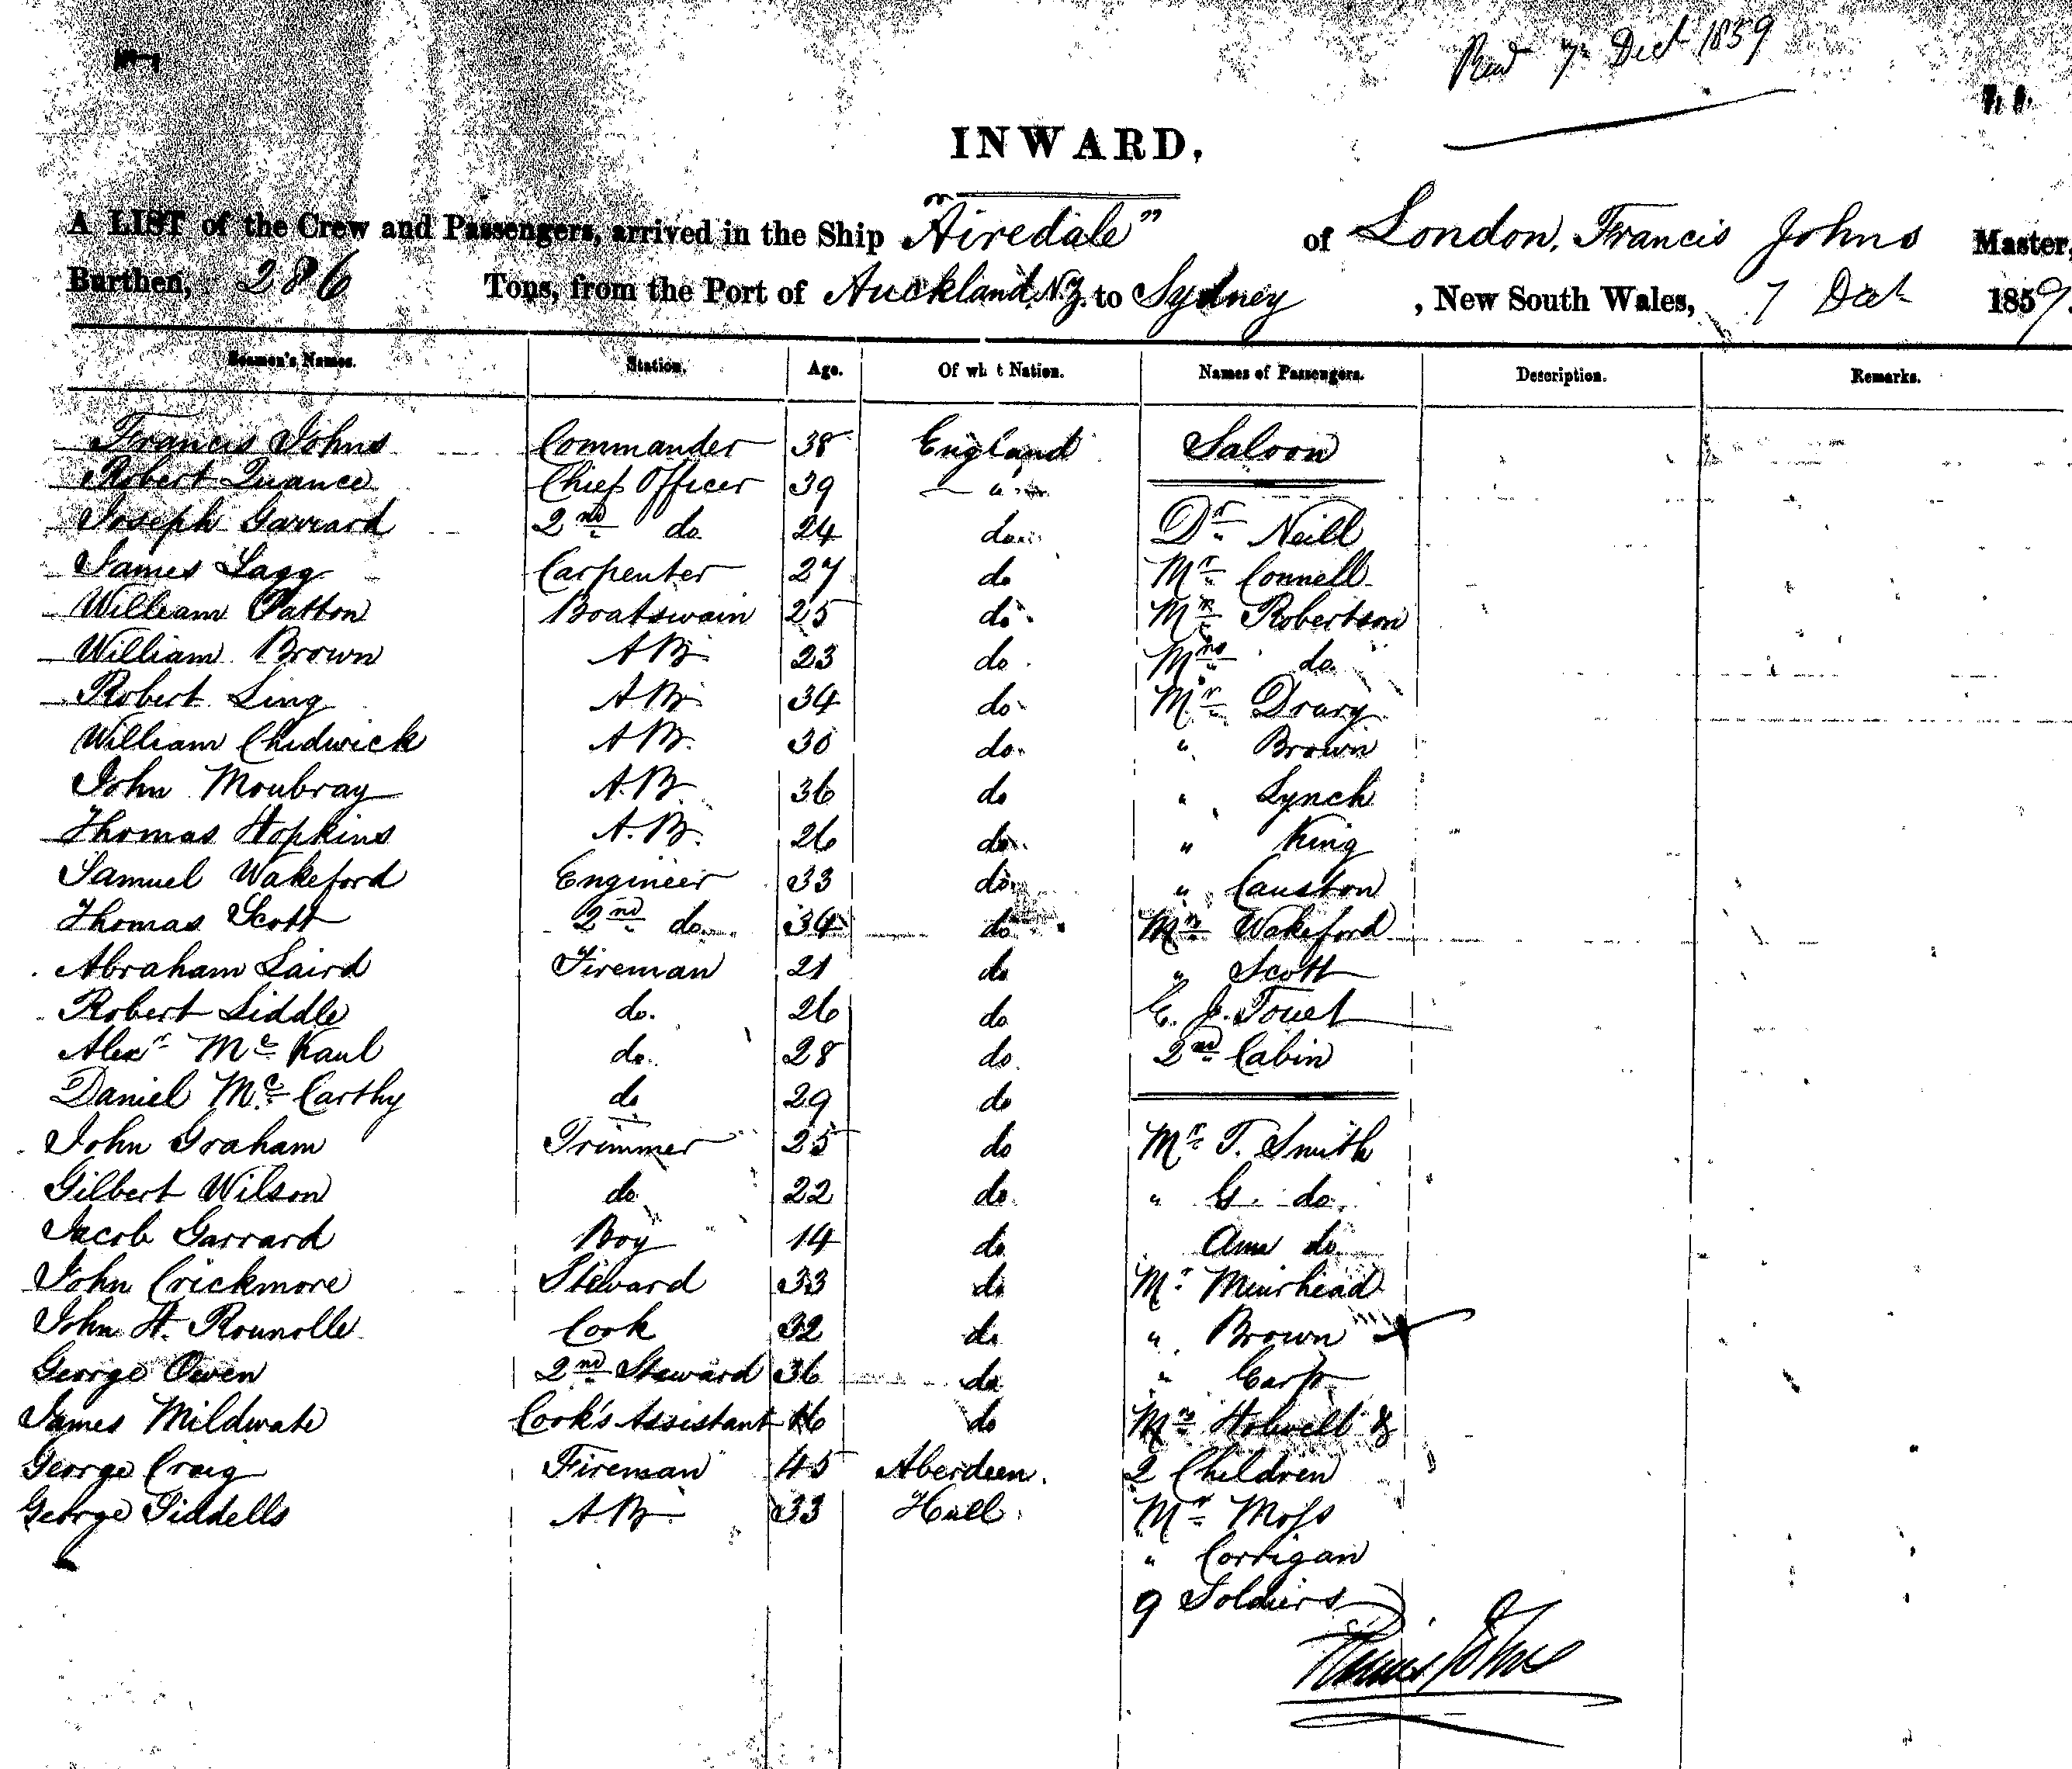 7 Dec 1859
INWARD,
A LIST of the Crew and Passengers, arrived in the Ship "Airedale" of London, Francis Johns Master,
Burthen, 286 Tons, from the Port of Auckland N.Z. to Sydney, New South Wales, 7 Dec 1859.
Seamen's Names. Station. Age. Of what Nation. Names of Passengers. Description. Remarks.
Francis Johns Commander 38 England Saloon
Robert Quance Chief Officer 39 "
Joseph Garrard 2nd do 24 do Dr Neill
James Lagg Carpenter 27 do Mr Connell
William Patton Boatswain 25 do Mr Robertson
William Brown AB 23 do Mrs do
Robert Ling AB 34 do Mr Drury
William Chidwick AB. 30 do " Brown
John Moubray A.B. 36 do " Lynch
Thomas Hopkins A.B. 26 do " King
Samuel Wakeford Engineer 33 do " Causton
Thomas Scott 2nd do 34 do Mrs Wakeford
Abraham Laird Fireman 21 do " Scott
Robert Liddle do. 26 do E. J. Touet
Alexr Mc Kaul do. 28 do 2nd Cabin
Daniel Mc Carthy do 29 do
John Graham Trimmer 25 do Mr T. Smith
Gilbert Wilson do 22 do " G. do
Jacob Garrard Boy 14 do Ann do
John Crickmore Steward 33 do Mr Muirhead
John H. Cook 32 do " Brown
George Owen 2nd Steward 36 do " Carp
James Mildwate Cook's Assistant 16 do Mrs Holwell &
George Craig Fireman 45 Aberdeen. 2 Children
George Tiddells A.B. 33 Hull Mr Moss
" Corrigan
9 Soldiers
Francis Johns